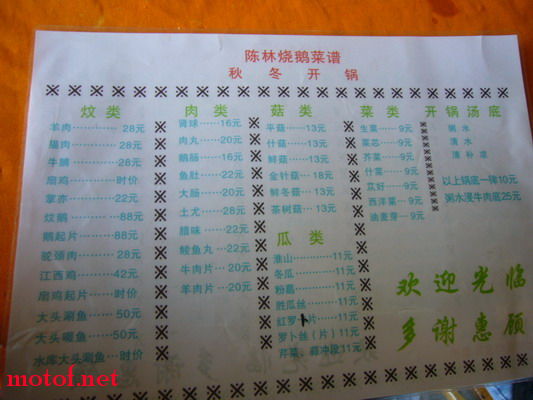 陈林烧鹅菜谱
秋冬开锅
炆类
羊肉 28元
猫肉 28元
牛腩 28元
扇鸡 时价
掌亦 22元
炆鹅 88元
鹅起片 88元
鸵颈肉 28元
江西鸡 42元
扇鸡起片 时价
大头涮鱼 50元
大头嗯鱼 50元
水库大头涮鱼 时价
肉类
肾球 16元
肉丸 20元
鹅肠 16元
鱼肚 22元
大肠 20元
土尤 28元
腊味 22元
鲮鱼丸 22元
牛肉片 20元
羊肉片 20元
菇类
平菇 13元
什菇 13元
鲜菇 13元
金针菇 18元
鲜冬菇 18元
茶树菇 18元
瓜类
淮山 11元
冬瓜 11元
粉葛 11元
胜瓜丝 11元
红罗卜片 11元
罗卜丝（片）11元
芹菜、蒜冲段11元
菜类
生菜 9元
菜芯 9元
芥菜 9元
什菜 9元
苋好 9元
西洋菜 9元
油麦芽 9元
开锅汤底
粥水
清水
清补凉
以上锅底一律10元
粥水浸牛肉底25元
欢迎光临
多谢惠顾
motof.net